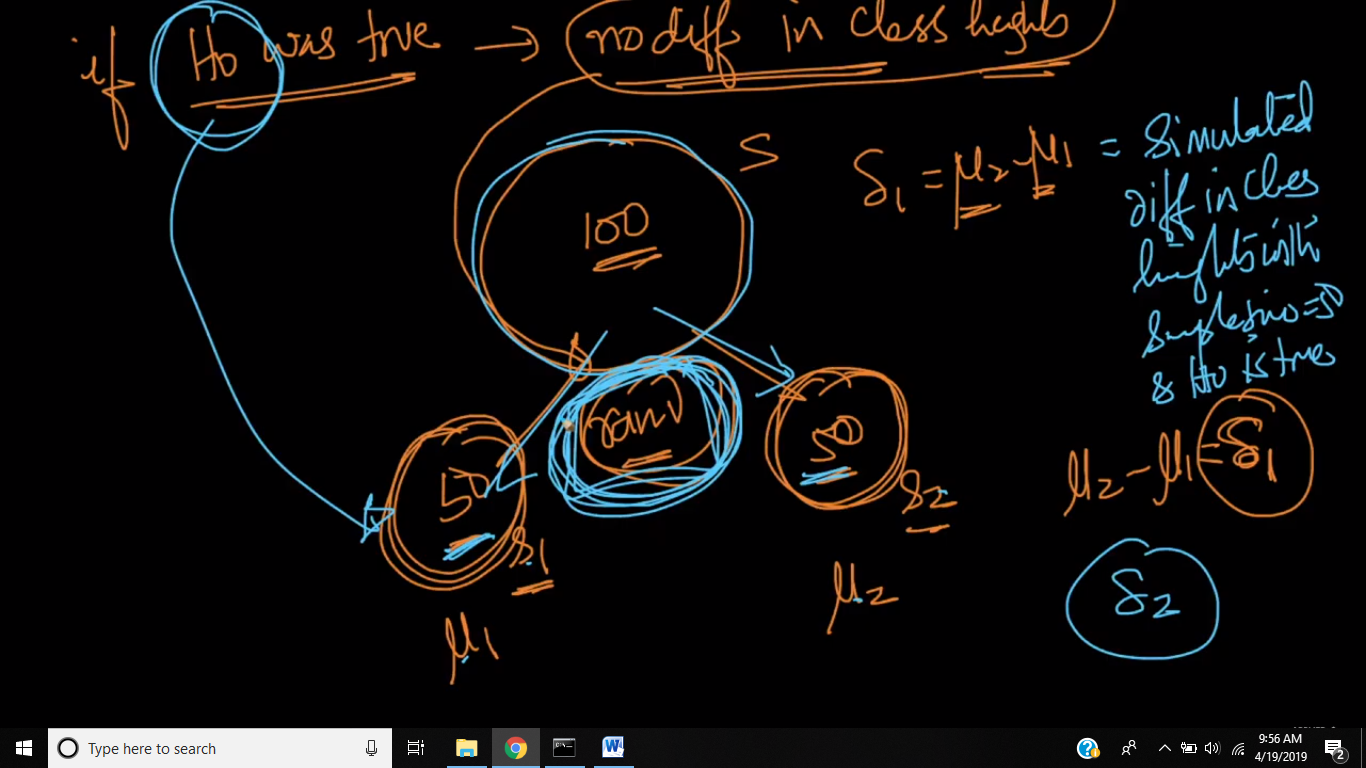 if H0 was true → no diff in class heights
S
100
δ1 = μ2 - μ1 = Simulated
diff in class
heights with
sample size = 50
& H0 is true
rand
50
50
S1
S2
μ2 - μ1 = δ1
δ2
μ1
μ2
Type here to search
9:56 AM
4/19/2019
2